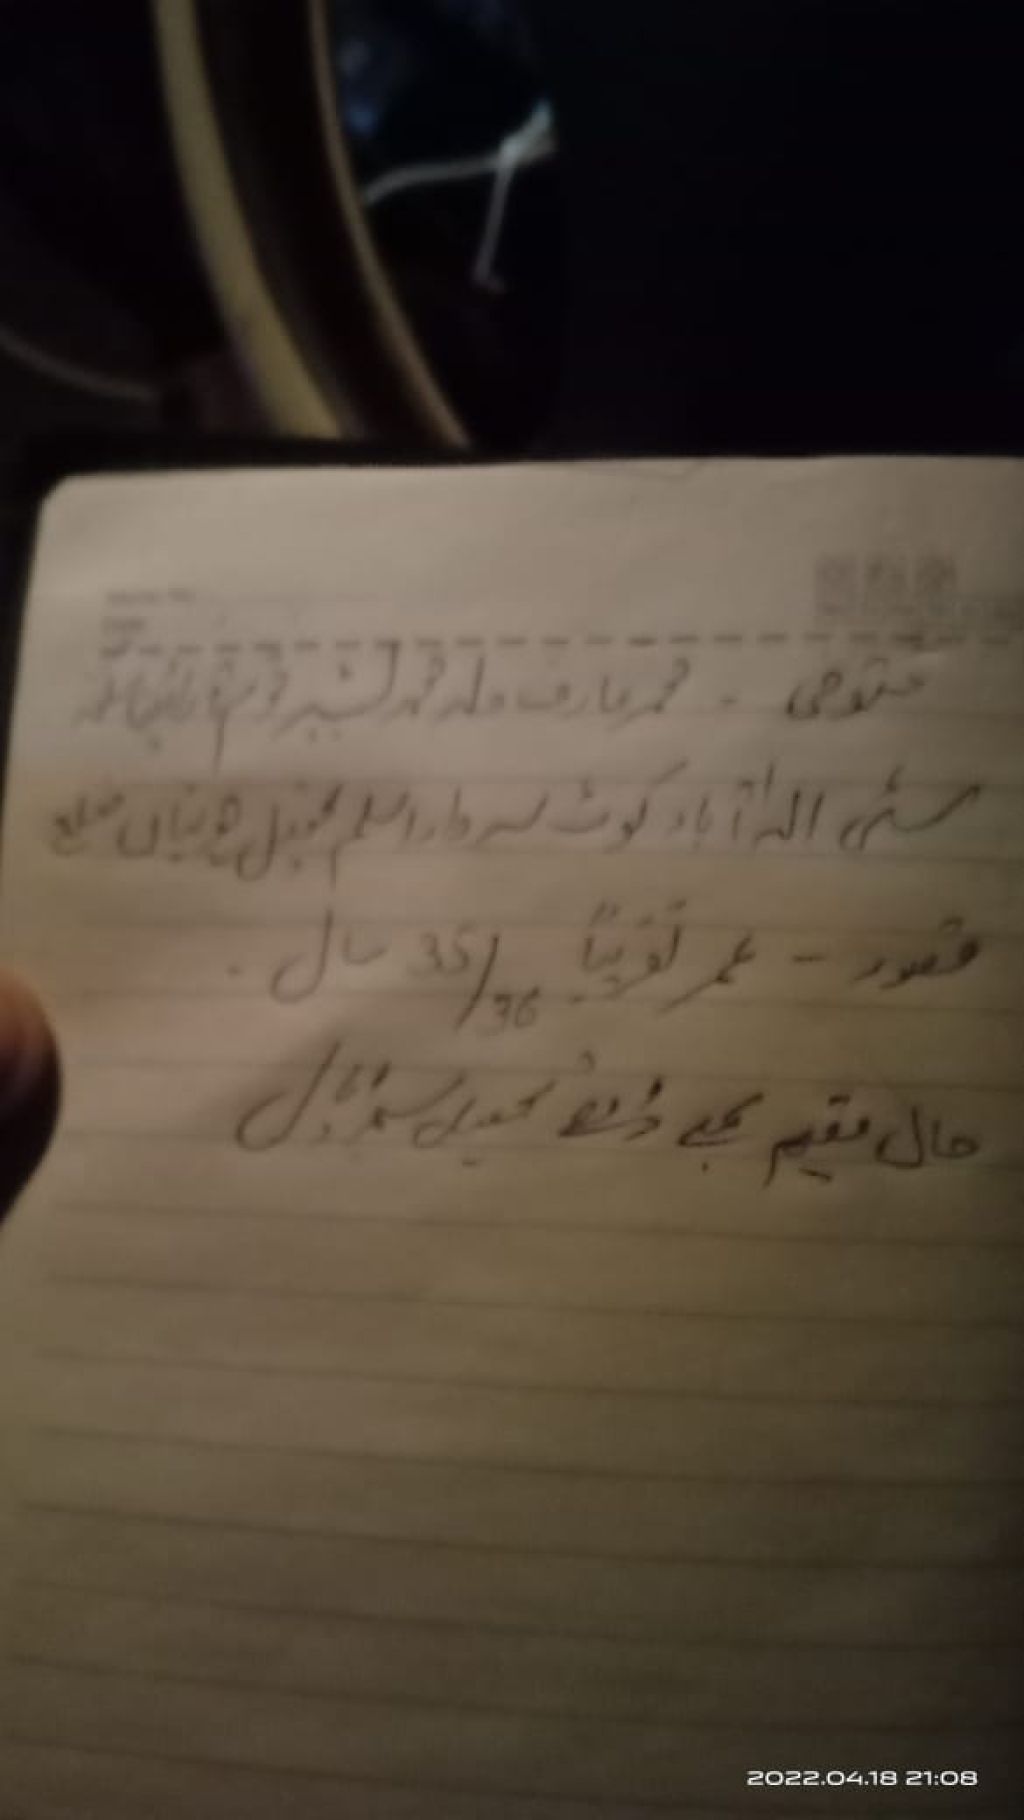 متوفی - محمد عارف ولد محمد بشیر قوم
بستی الہ آباد کوٹ سردار اسلم تحصیل چونیاں ضلع
قصور - عمر تقریباً 35/36 سال -
حال مقیم تحصیل
2022.04.18 21:08